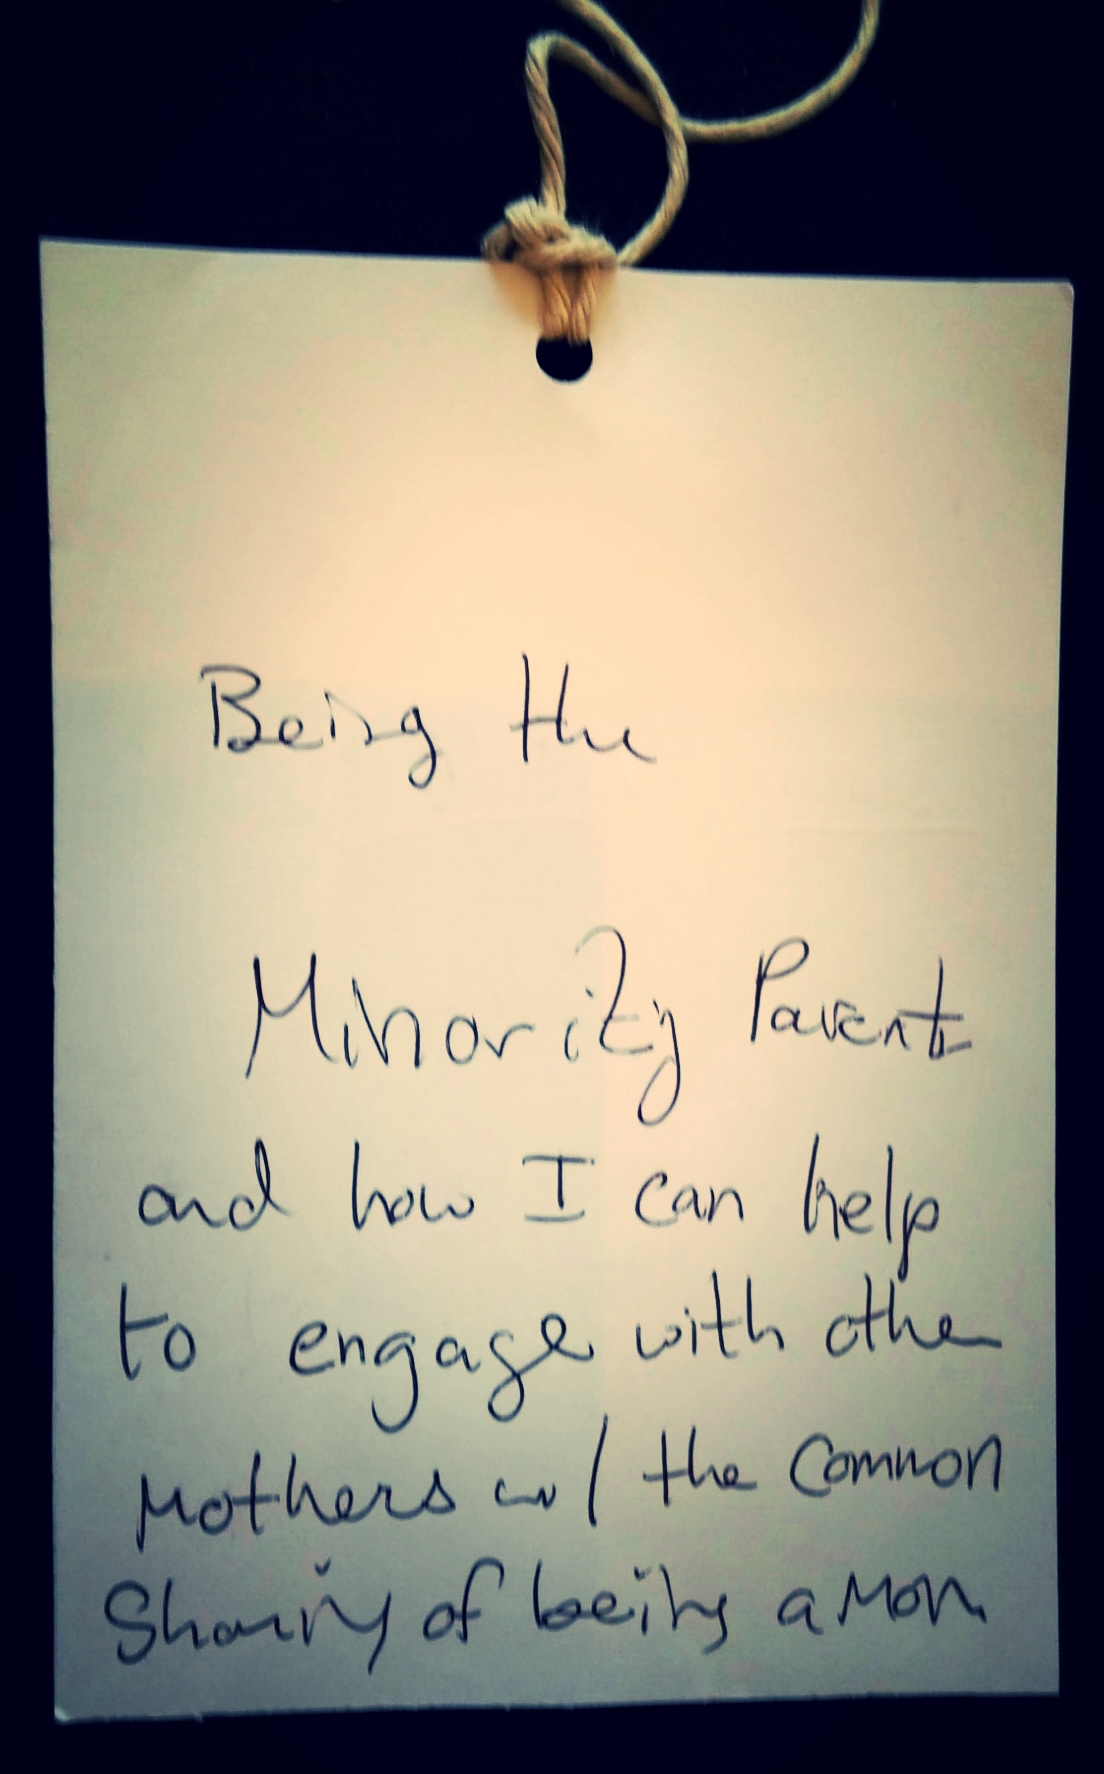 Being the
Minority Parent
and how I can help
to engage with other
Mothers w/ the common
Sharing of being a Mom.